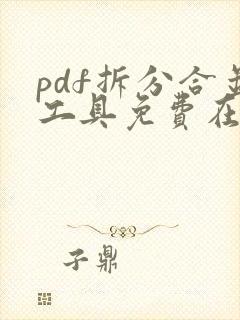 pdf拆分合
工具免費在
子鼎